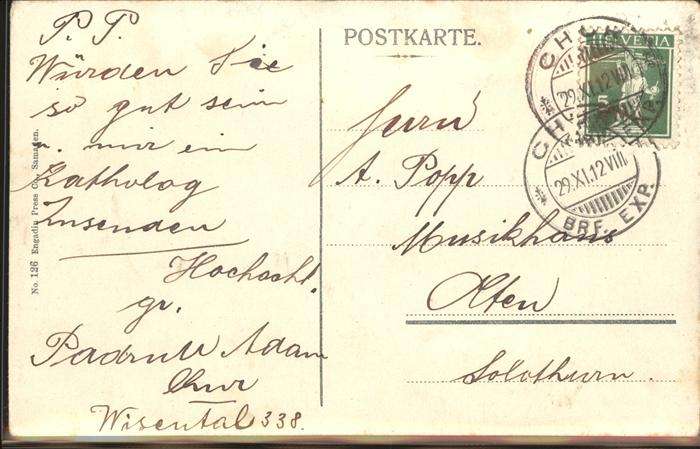 P. P.
Würden Sie
so gut sein
u. mir ein
Katholog
Zusenden
Hochacht.
gr.
Padrutt Adam
Chur
Wisental 338.
No. 126 Engadin Press Co., Samaden.
POSTKARTE.
Herrn
A. Popp
Musikhaus
Olten
Solothurn.
HELVETIA
5
CHUR
29.XI.12 VIII
BRF. EXP.
CHUR
29.XI.12 VIII
BRF. EXP.